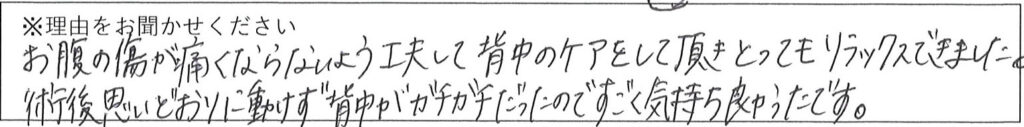 ※理由をお聞かせください
お腹の傷が痛くならないよう工夫して背中のケアをして頂きとってもリラックスできました。
術後思いどおりに動けず背中がガチガチだったのですごく気持ち良かったです。